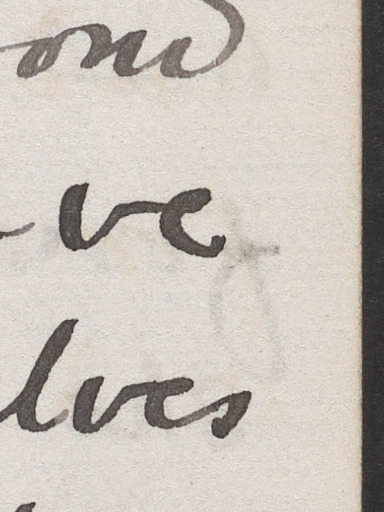 ond
ve
lves